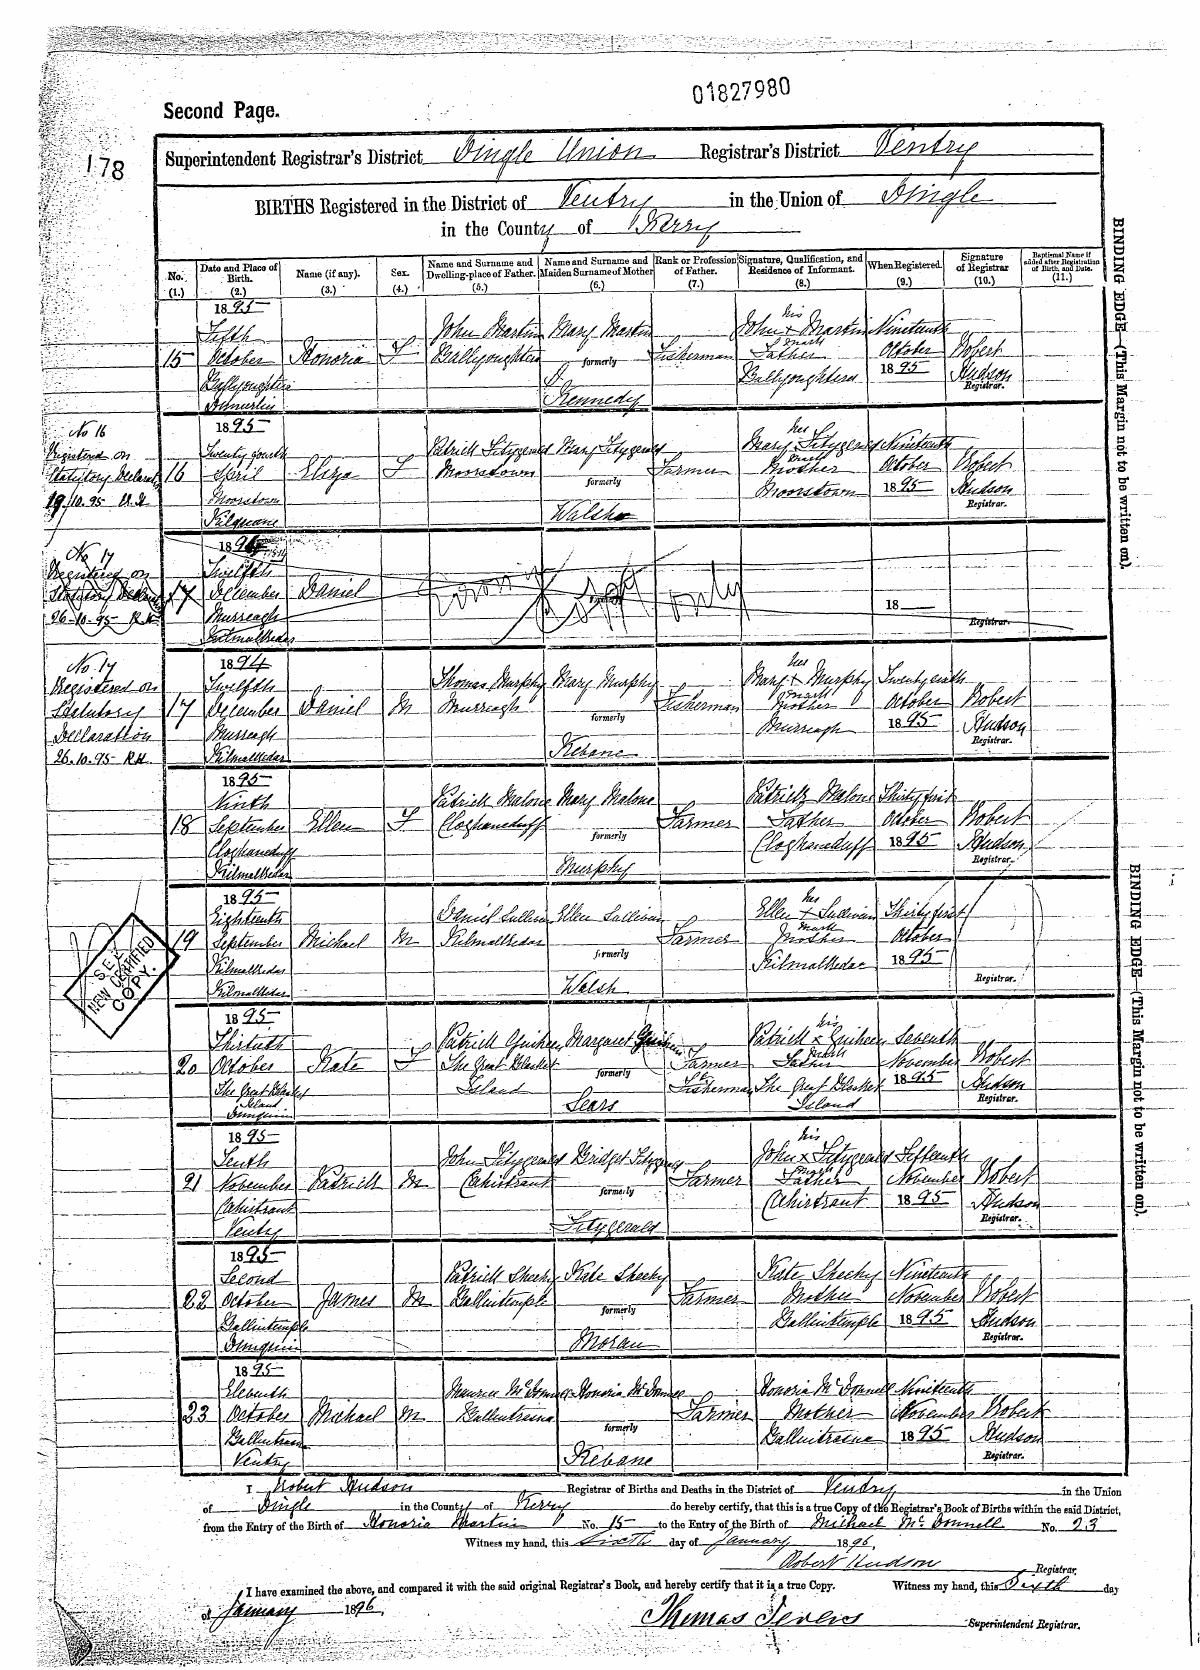 01827980
Second Page.
178
Superintendent Registrar's District Dingle Union Registrar's District Ventry
BIRTHS Registered in the District of Ventry in the Union of Dingle
in the County of Kerry
No. (1.) Date and Place of Birth. (2.) Name (if any). (3.) Sex. (4.) Name and Surname and Dwelling-place of Father. (5.) Name and Surname and Maiden Surname of Mother (6.) Rank or Profession of Father. (7.) Signature, Qualification, and Residence of Informant. (8.) When Registered. (9.) Signature of Registrar (10.) Baptismal Name if added after Registration of Birth, and Date. (11.)
1895
his
Fifth John Martin Mary Martin John x Martin Nineteenth
mark
15 October Honoria F Ballyoughtera formerly Fisherman Father October Robert
Ballyoughtera Ballyoughtera 1895 Hudson
Dunurlin Kennedy Registrar.
No 16 1895
her
Registered on Twenty fourth Patrick Fitzgerald Mary Fitzgerald Mary Fitzgerald Nineteenth
mark
Statutory Declaration 16 April Eliza F Moorestown formerly Farmer Mother October Robert
19.10.95 R.H Moorestown Moorestown 1895 Hudson
Kilquane Walsh Registrar.
No 17 189
Registered on Twelfth
Statutory 17 December Daniel Error only
26.10.95 R.H Murreagh 18
Kilmalkedar Registrar.
No 17 1894
her
Registered on Twelfth Thomas Murphy Mary Murphy Mary x Murphy Twenty sixth
mark
Statutory 17 December Daniel M Murreagh formerly Fisherman Mother October Robert
Declaration Murreagh Murreagh 1895 Hudson
26.10.95 R.H. Kilmalkedar Kebane Registrar.
1895
Ninth Patrick Malone Mary Malone Patrick Malone Thirty first
18 September Ellen F Cloghaneduff formerly Farmer Father October Robert
Cloghaneduff Cloghaneduff 1895 Hudson
Kilmalkedar Murphy Registrar.
1895
her
Eighteenth Daniel Sullivan Ellen Sullivan Ellen x Sullivan Thirty first
mark
19 September Michael M Kilmalkedar formerly Farmer Mother October
Kilmalkedar Kilmalkedar 1895
Kilmalkedar Walsh Registrar.
SEE
NEW CERTIFIED
COPY.
1895
his
Thirtieth Patrick Guiheen Margaret Guiheen Patrick x Guiheen Seventh
mark
20 October Kate F The Great Blasket formerly Farmer Father November Robert
The Great Blasket Island Fisherman The Great Blasket 1895 Hudson
Island Dunquin Sears Island Registrar.
1895
his
Tenth John Fitzgerald Bridget Fitzgerald John x Fitzgerald Fifteenth
mark
21 November Patrick M Cahirtrant formerly Farmer Father November Robert
Cahirtrant Cahirtrant 1895 Hudson
Ventry Fitzgerald Registrar.
1895
Second Patrick Sheehy Kate Sheehy Kate Sheehy Nineteenth
22 October James M Ballintemple formerly Farmer Mother November Robert
Ballintemple Ballintemple 1895 Hudson
Dunquin Moran Registrar.
1895
Eleventh Maurice McDonnell Honoria McDonnell Honoria McDonnell Nineteenth
23 October Michael M Ballintraena formerly Farmer Mother November Robert
Ballintraena Ballintraena 1895 Hudson
Ventry Kebane Registrar.
I Robert Hudson Registrar of Births and Deaths in the District of Ventry in the Union
of Dingle in the County of Kerry do hereby certify, that this is a true Copy of the Registrar's Book of Births within the said District,
from the Entry of the Birth of Honoria Martin No. 15 to the Entry of the Birth of Michael McDonnell No. 23
Witness my hand, this Sixth day of January 1896,
Robert Hudson Registrar,
I have examined the above, and compared it with the said original Registrar's Book, and hereby certify that it is a true Copy. Witness my hand, this Sixth day
of January 1896, Thomas Superintendent Registrar.
BINDING EDGE—(This Margin not to be written on).
BINDING EDGE—(This Margin not to be written on).